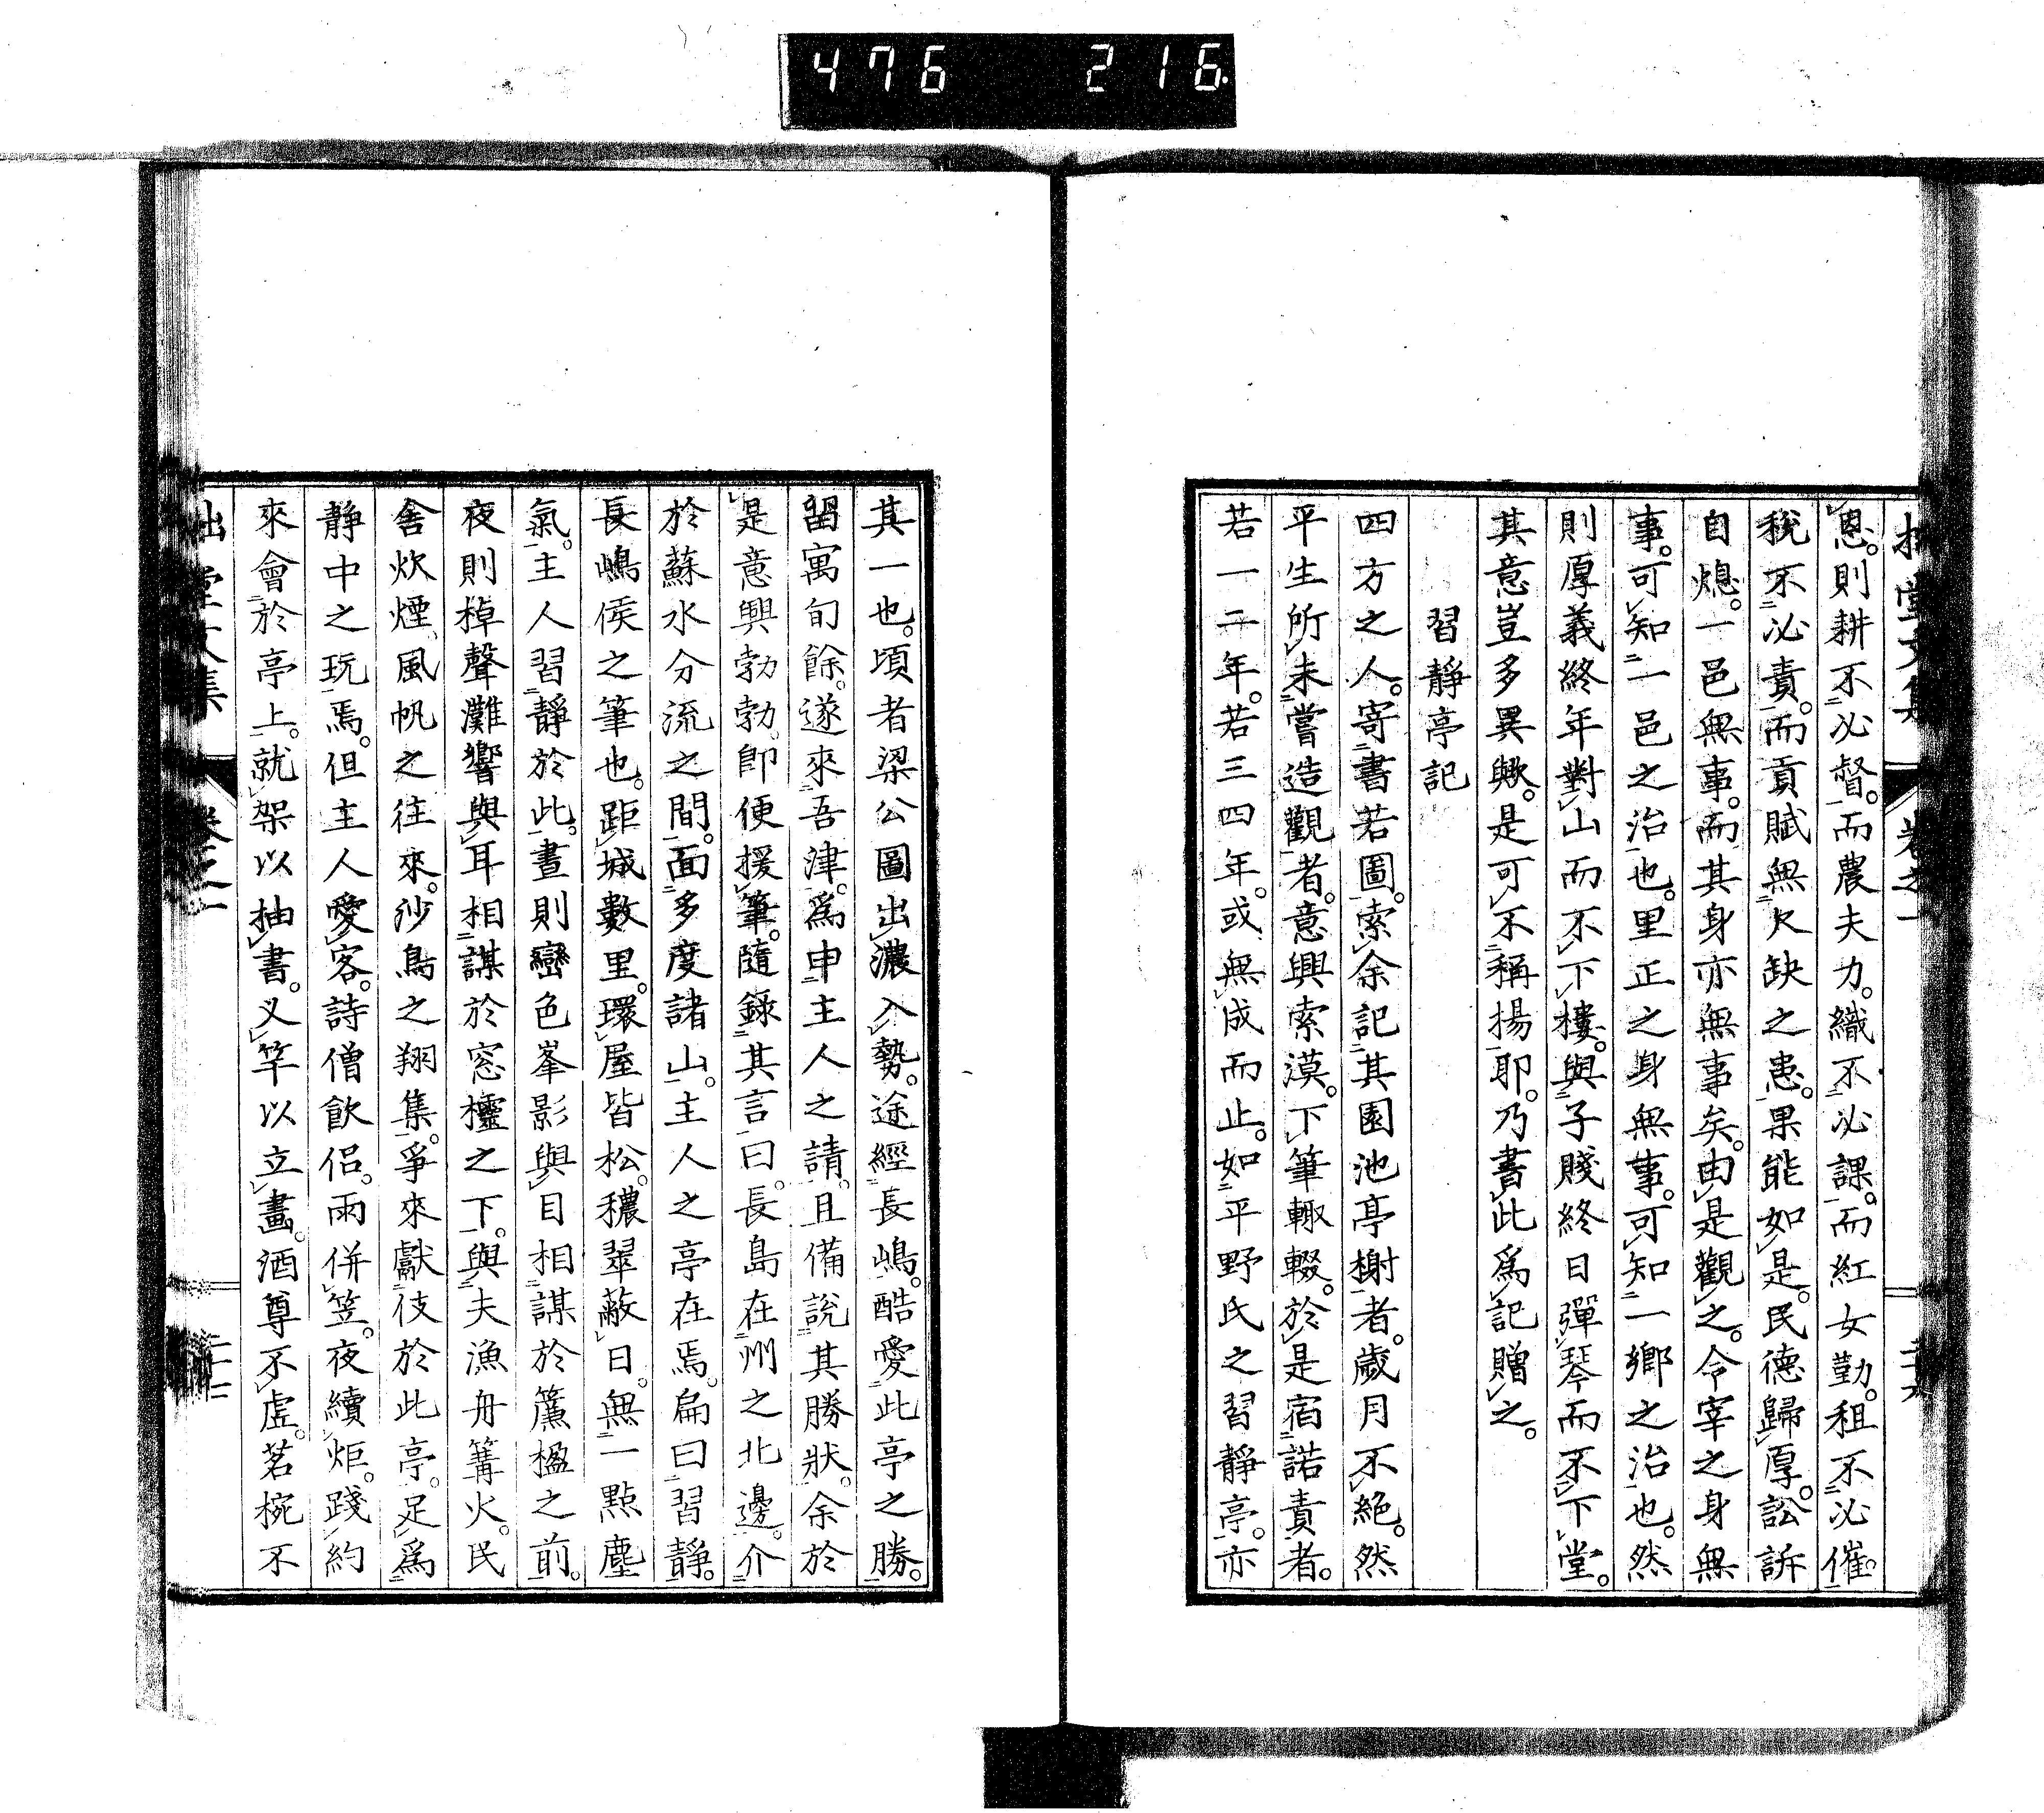 476 216.
拙堂文集 卷之一
恩。則耕不必督。而農夫力。織不必課。而紅女勤。租不必催。
稅不必責。而貢賦無欠缺之患。果能如是。民德歸厚。訟訴
自熄。一邑無事。而其身亦無事矣。由是觀之。令宰之身無
事。可知一邑之治也。里正之身無事。可知一鄉之治也。然
則厚義終年對山而不下樓。與子賤終日彈琴而不下堂。
其意豈多異歟。是可不稱揚耶。乃書此爲記贈之。
習靜亭記
四方之人。寄書若圖。索余記其園池亭榭者。歲月不絕。然
平生所未嘗造觀者。意興索漠。下筆輙輟。於是宿諾責者。
若一二年。若三四年。或無成而止。如平野氏之習靜亭。亦
其一也。頃者梁公圖出濃入勢。途經長嶋。酷愛此亭之勝。
留寓旬餘。遂來吾津。爲申主人之請。且備說其勝狀。余於
是意興勃勃。卽便援筆。隨錄其言曰。長島在州之北邊。介
於蘇水分流之間。面多度諸山。主人之亭在焉。扁曰習靜。
長嶋侯之筆也。距城數里。環屋皆松。穠翠蔽日。無一點塵
氣。主人習靜於此。晝則巒色峯影與目相謀於簾楹之前。
夜則棹聲灘響與耳相謀於窓櫺之下。與夫漁舟篝火。民
舍炊煙。風帆之往來。沙鳥之翔集。爭來獻伎於此亭。足爲
靜中之玩焉。但主人愛客。詩僧飮侶。雨併笠。夜續炬。踐約
來會於亭上。就架以抽書。乂竿以立畫。酒尊不虛。茗椀不
拙堂文集 卷之一